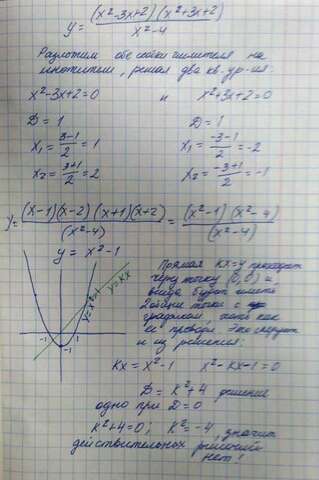 y = (x²-3x+2)(x²+3x+2) / x²-4
Разложим обе скобки числителя на
множители, решая два кв. ур-ия:
x²-3x+2=0 и x²+3x+2=0
D = 1 D = 1
x₁ = 3-1/2 = 1 x₁ = -3-1/2 = -2
x₂ = 3+1/2 = 2 x₂ = -3+1/2 = -1
y = (x-1)(x-2)(x+1)(x+2) / (x²-4) = (x²-1)(x²-4) / (x²-4)
y = x²-1
y=x²-1
y=kx
-1 1
-1
Прямая kx=y проходит
через точку (0,0) и
всегда будет иметь
общие точки с
графиком, так как
Это следует
и из решения:
kx = x²-1 x²-kx-1=0
D = k²+4 решение
одно при D=0
k²+4=0; k²=-4, значит
действительных решений
нет!